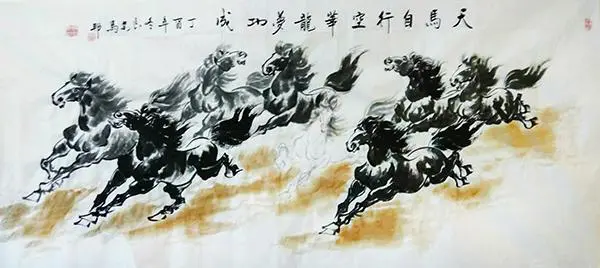 天馬自行空華龍夢功成丁酉年冬馬